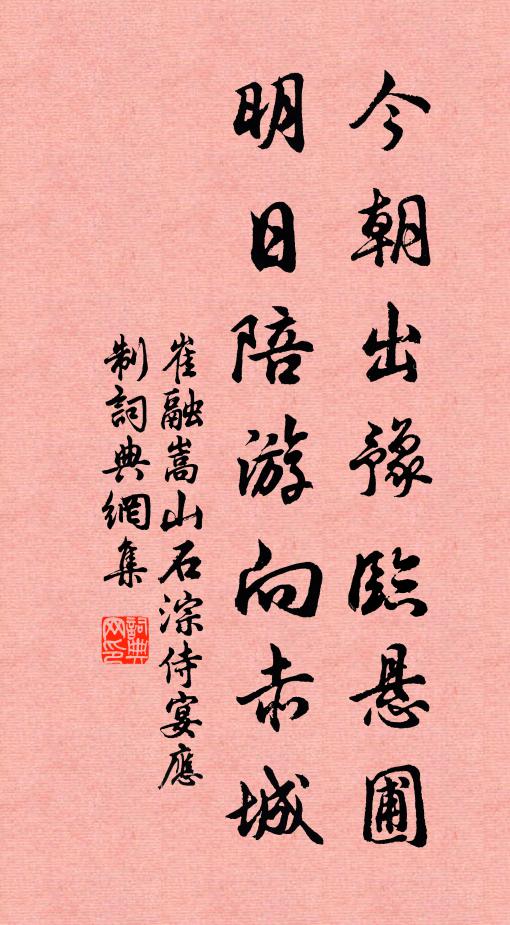 今朝出豫臨悬圃
明日陪游向赤城
崔融嵩山石淙侍宴應
制詞典網集
詞典
网印